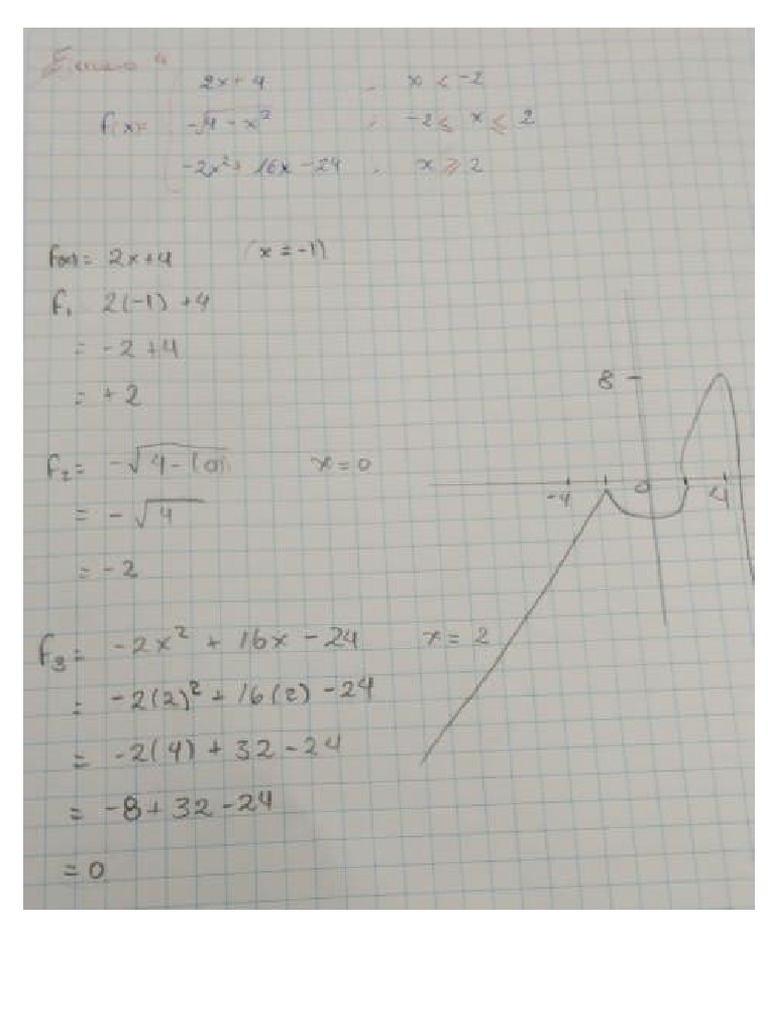 2x+4 , x < -2
f(x)= -√4-x² , -2 ≤ x ≤ 2
-2x²+ 16x -24 , x ≥ 2
f(x)= 2x+4 (x = -1)
f₁ 2(-1) +4
= -2 +4
= +2
f₂= -√4-(0) x=0
= -√4
= -2
f₃= -2x² + 16x - 24 x = 2
= -2(2)² + 16(2) -24
= -2(4) + 32 -24
= -8+ 32 -24
= 0
8
-4 0 4